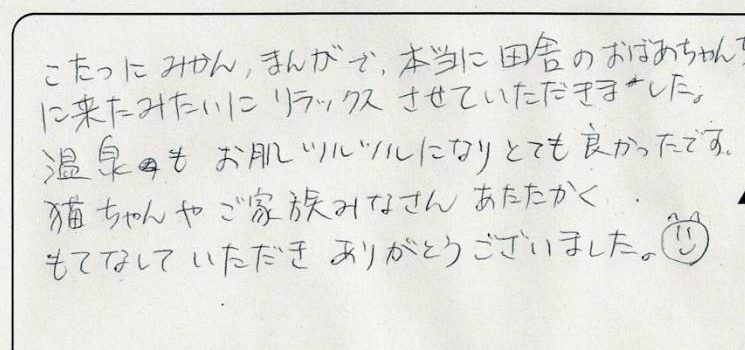 こたつに みかん、まんがで、本当に 田舎の おばあちゃんち
に来たみたいに リラックス させていただきました。
温泉も お肌ツルツルになり とても 良かったです。
猫ちゃんや ご家族みなさん あたたかく..
もてなして いただき ありがとうございました。